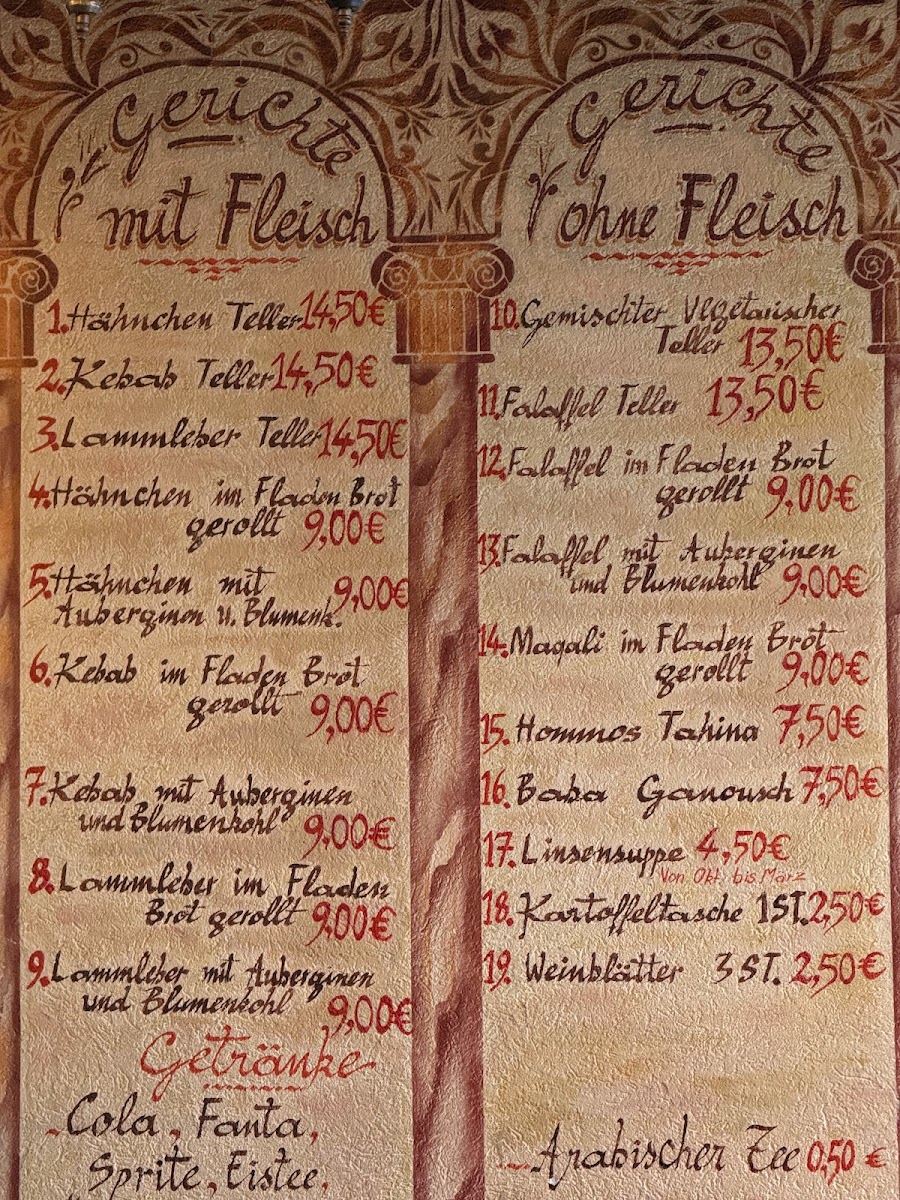 Gerichte
mit Fleisch
1. Hähnchen Teller 14,50€
2. Kebab Teller 14,50€
3. Lammleber Teller 14,50€
4. Hähnchen im Fladen Brot
gerollt 9,00€
5. Hähnchen mit 9,00€
Auberginen u. Blumenk.
6. Kebab im Fladen Brot
gerollt 9,00€
7. Kebab mit Auberginen
und Blumenkohl 9,00€
8. Lammleber im Fladen
Brot gerollt 9,00€
9. Lammleber mit Auberginen
und Blumenkohl 9,00€
Getränke
Cola, Fanta,
Sprite, Eistee,
Gerichte
ohne Fleisch
10. Gemischter Vegetarischer
Teller 13,50€
11. Falaffel Teller 13,50€
12. Falaffel im Fladen Brot
gerollt 9,00€
13. Falaffel mit Auberginen
und Blumenkohl 9,00€
14. Maqali im Fladen Brot
gerollt 9,00€
15. Hommos Tahina 7,50€
16. Baba Ganousch 7,50€
17. Linsensuppe 4,50€
Von Okt. bis März
18. Kartoffeltasche 1ST. 2,50€
19. Weinblätter 3 ST. 2,50€
Arabischer Tee 0,50 €